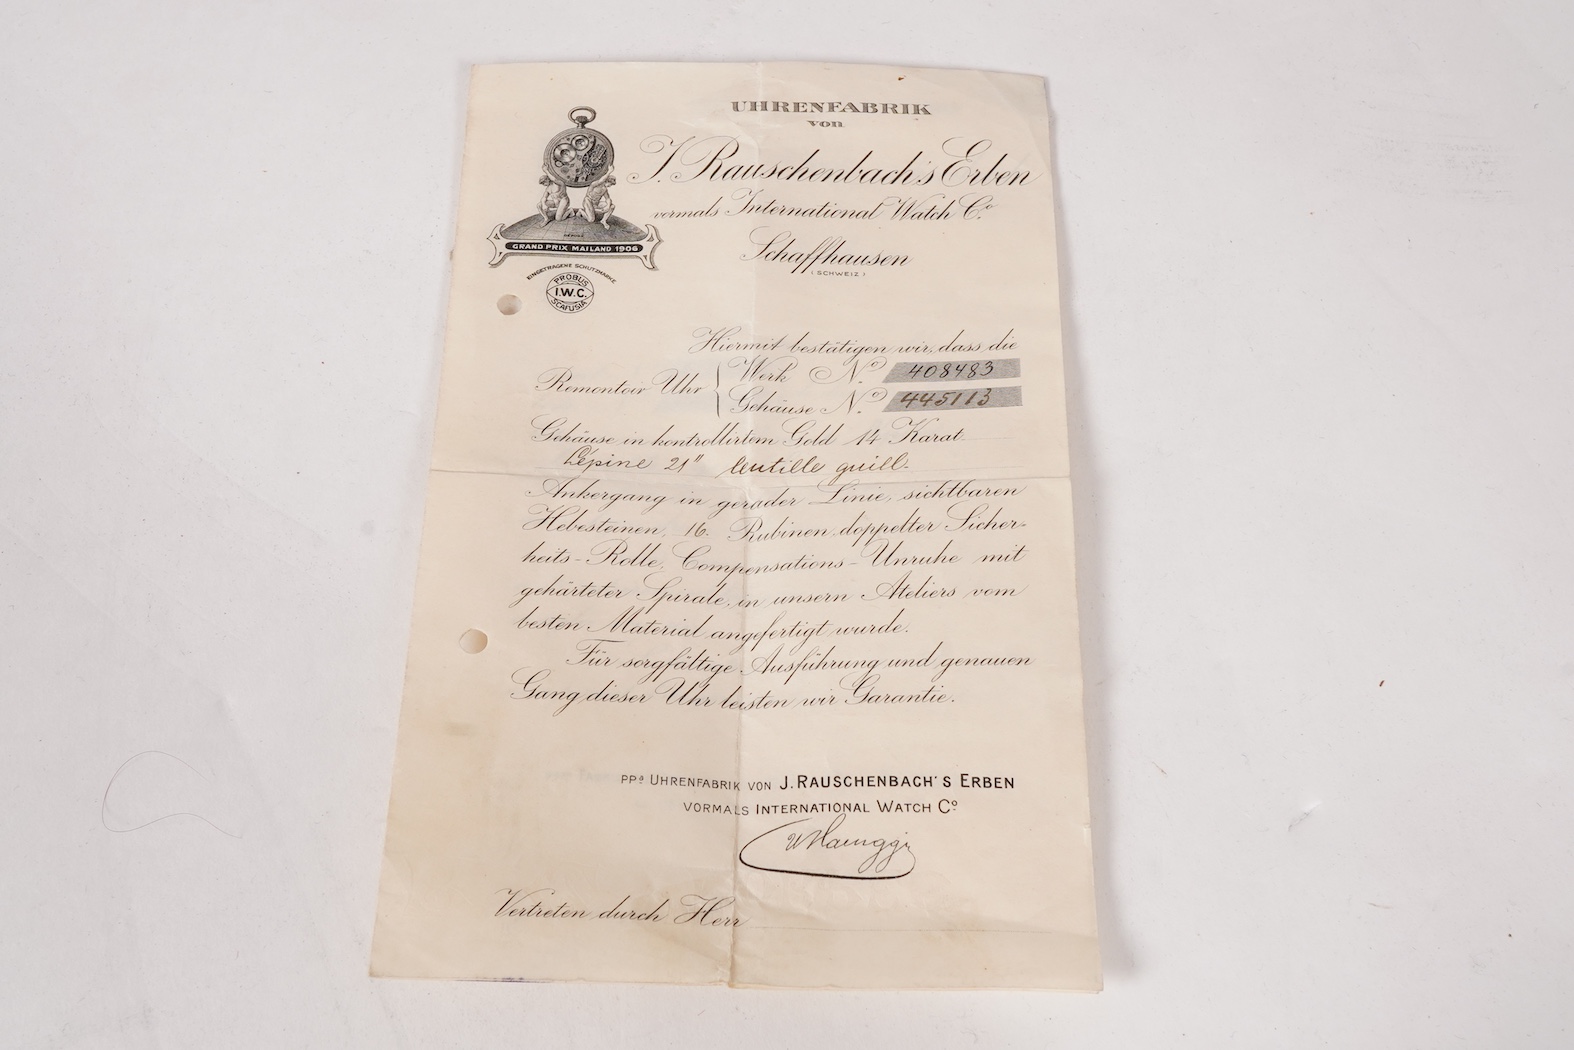 UHRENFABRIK
von
J. Rauschenbach's Erben
vormals International Watch Co.
Schaffhausen
(SCHWEIZ)
GRAND PRIX MAILAND 1906
EINGETRAGENE SCHUTZMARKE
PROBUS
I.W.C.
SCAFUSIA
Hiermit bestätigen wir, dass die
Remontoir Uhr { Werk No. 408483
Gehäuse No. 445113
Gehäuse in kontrollirtem Gold 14 Karat
Lépine 21" lentille guill.
Ankergang in gerader Linie, sichtbaren
Hebesteinen, 16 Rubinen, doppelter Sicher-
heits-Rolle, Compensations-Unruhe mit
gehärteter Spirale, in unsern Ateliers vom
besten Material angefertigt wurde.
Für sorgfältige Ausführung und genauen
Gang dieser Uhr leisten wir Garantie.
PPa UHRENFABRIK VON J. RAUSCHENBACH'S ERBEN
VORMALS INTERNATIONAL WATCH Co.
Vertreten durch Herr